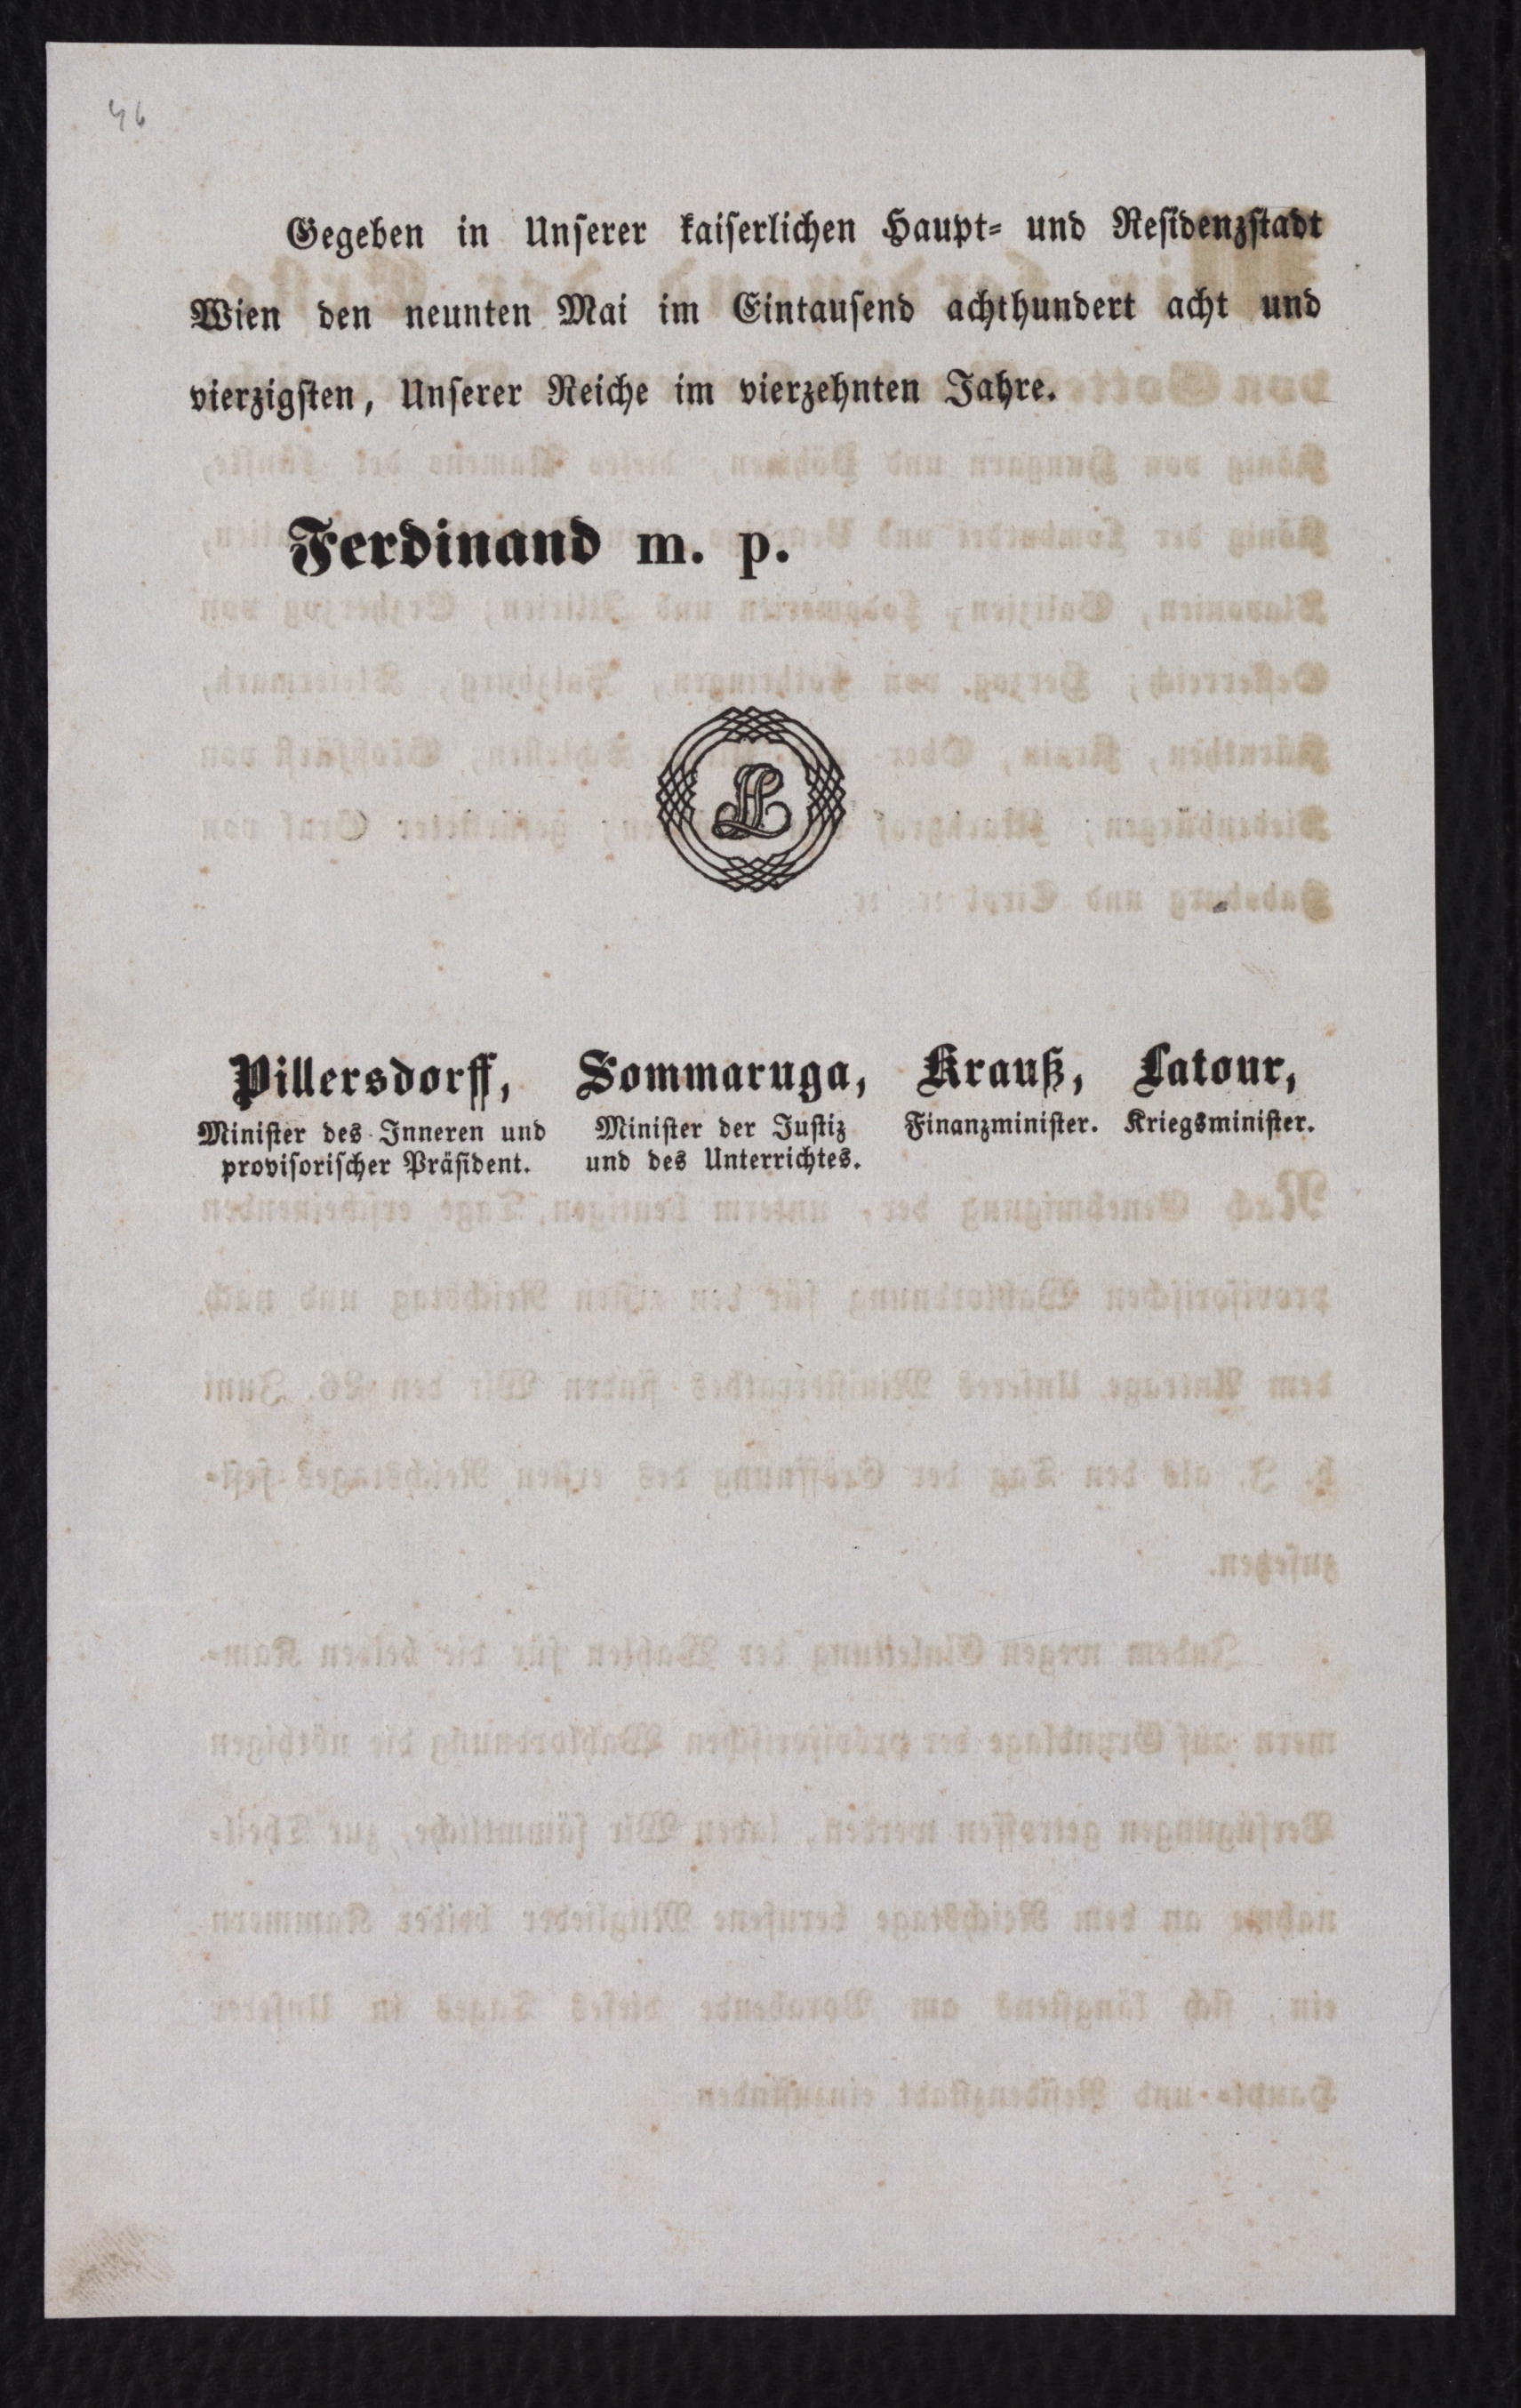 46
Gegeben in Unserer kaiserlichen Haupt- und Residenzstadt
Wien den neunten Mai im Eintausend achthundert acht und
vierzigsten, Unserer Reiche im vierzehnten Jahre.
Ferdinand m. p.
Pillersdorff, Sommaruga, Krauß, Latour,
Minister des Inneren und Minister der Justiz Finanzminister. Kriegsminister.
provisorischer Präsident. und des Unterrichtes.